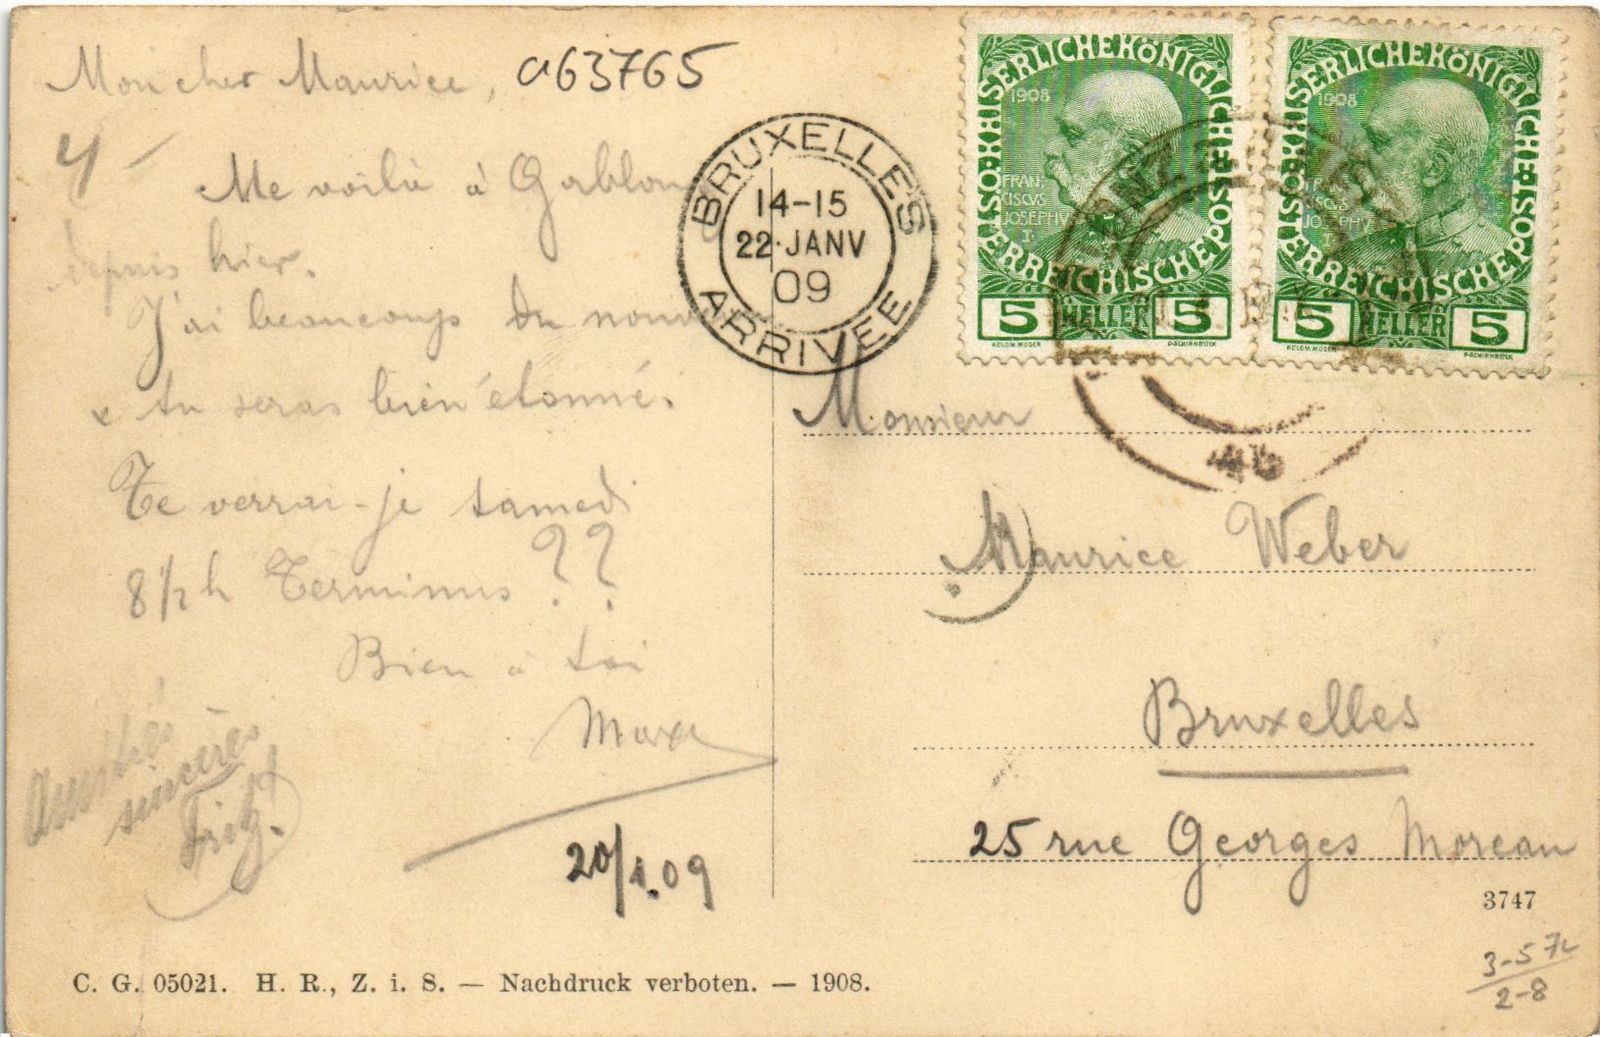 Mon cher Maurice, a63765
4/-
Me voilà à Gablonz
depuis hier.
J'ai beaucoup du nouv
x tu seras bien étonné.
Te verrai-je samedi
8 1/2 h Terminus ??
Bien à toi
Max
Amitiés
sincères
Fritz!
20/1.09
C. G. 05021. H. R., Z. i. S. — Nachdruck verboten. — 1908.
BRUXELLES
14-15
22·JANV
09
ARRIVEE
KAISERLICHEKÖNIGLICHE
ÖSTERREICHISCHEPOST
1908
FRAN
CISCVS
JOSEPHVS
I
5 HELLER 5
KOLOM. MOSER F. SCHIRNBÖCK
KAISERLICHEKÖNIGLICHE
ÖSTERREICHISCHEPOST
1908
FRAN
CISCVS
JOSEPHVS
I
5 HELLER 5
KOLOM. MOSER F. SCHIRNBÖCK
Monsieur
Maurice Weber
Bruxelles
25 rue Georges Moreau
3747
2-8